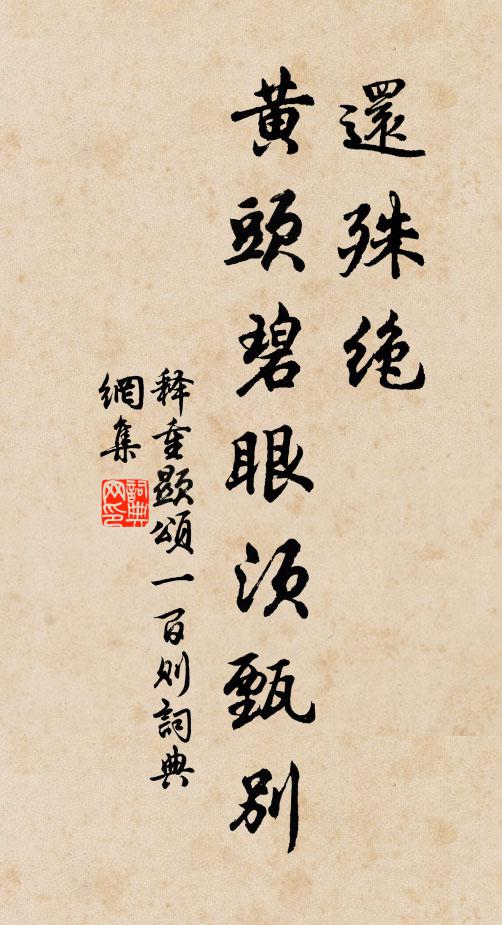 還殊絶
黃頭碧眼須甄別
釋重顯頌一百則詞典
網集
詞典網印